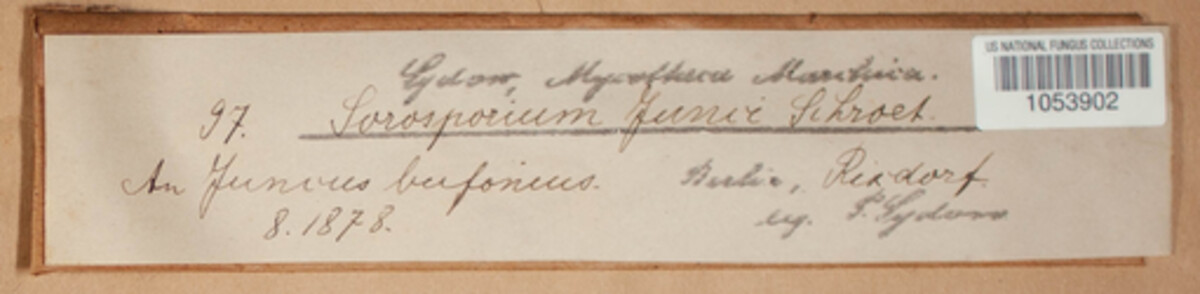 Sydow, Mycotheca Marchica.
US NATIONAL FUNGUS COLLECTIONS
1053902
97. Sorosporium Junci Schroet.
An Juncus bufonius. Berlin, Rixdorf.
8. 1878. leg. P. Sydow